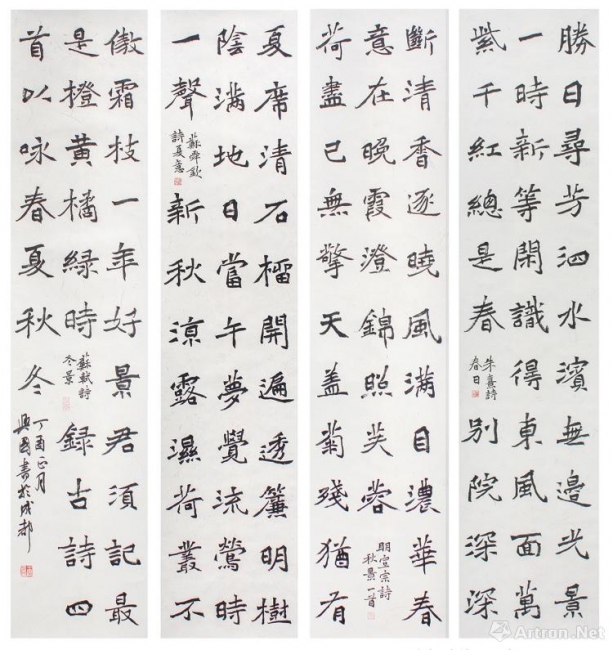 勝日尋芳泗水濱無邊光景
一時新等閑識得東風面萬
紫千紅總是春
朱熹詩
春日
別院深深
夏席清石榴開遍透簾明樹
陰滿地日當午夢覺流鶯時
一聲
蘇舜欽
詩夏意
新秋涼露濕荷叢不
斷清香逐曉風滿目濃華春
意在晚霞澄錦照芙蓉
明宣宗詩
秋景一首
荷盡已無擎天蓋菊殘猶有
傲霜枝一年好景君須記最
是橙黃橘綠時
蘇軾詩
冬景
録古詩四
首以咏春夏秋冬
丁酉正月
興國書於成都
Artron.Net